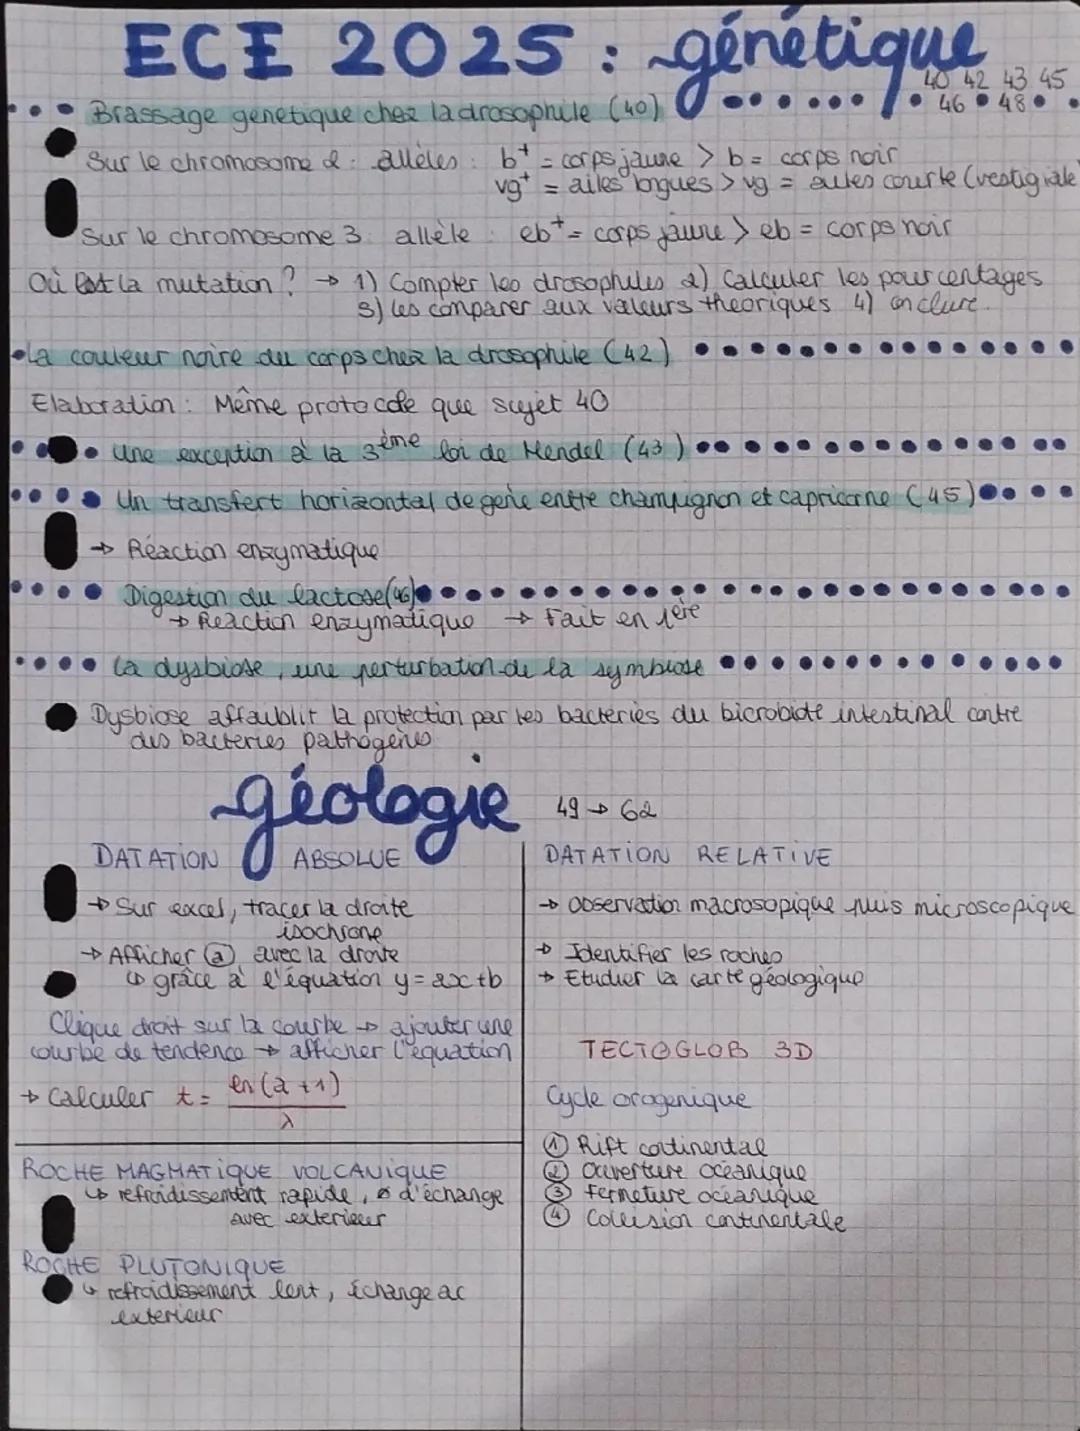 ECE 2025 : génétique
40 42 43 45
46 48
Brassage genetique chez la drosophile (40)
Sur le chromosome 2 : allèles : b⁺ = corps jaune > b = corps noir
vg⁺ = ailes longues > vg = ailes courte (vestigiale
Sur le chromosome 3 : allèle : eb⁺ = corps jaune > eb = corps noir
Où est la mutation ? → 1) Compter les drosophiles 2) Calculer les pourcentages
3) les comparer aux valeurs theoriques 4) conclure.
La couleur noire du corps chez la drosophile (42)
Elaboration : Même protocole que sujet 40
Une exception à la 3ème loi de Mendel (43)
Un transfert horizontal de gene entre champignon et capricorne (45)
→ Réaction enzymatique
Digestion du lactose (46)
→ Reaction enzymatique → Fait en 1ère
La dysbiose, une perturbation de la symbiose
Dysbiose affaiblit la protection par les bacteries du bicrobiote intestinal contre
des bacteries pathogènes
géologie 49 → 62
DATATION ABSOLUE
→ Sur excel, tracer la droite
isochrone
→ Afficher (a) avec la droite
↳ grâce à l'équation y = ax+b
Clique droit sur la courbe → ajouter une
courbe de tendence → afficher l'equation
→ Calculer t = ln(a+1)
λ
ROCHE MAGMATIQUE VOLCANIQUE
↳ refroidissement rapide, ø d'échange
avec exterieur
ROCHE PLUTONIQUE
↳ refroidissement lent, échange ac
exterieur
DATATION RELATIVE
→ Observation macrosopique puis microscopique
→ Identifier les roches
→ Etudier la carte géologique
TECTOGLOB 3D
Cycle orogenique
① Rift continental
② Ouverture océanique
③ Fermeture océanique
④ Collision continentale